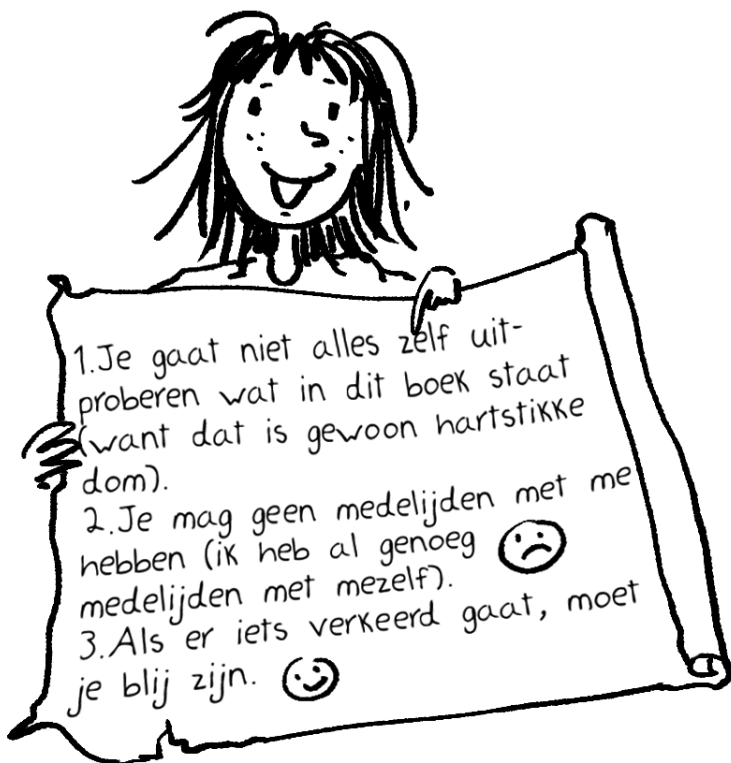 1.Je gaat niet alles zelf uit-
proberen wat in dit boek staat
(want dat is gewoon hartstikke
dom).
2.Je mag geen medelijden met me
hebben (ik heb al genoeg
medelijden met mezelf).
3.Als er iets verkeerd gaat, moet
je blij zijn.